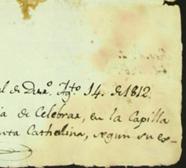 l de Dure. Agto 14. de 1812.
ia de Celebrar, en la Capilla
nta Cathalina, segun su es-